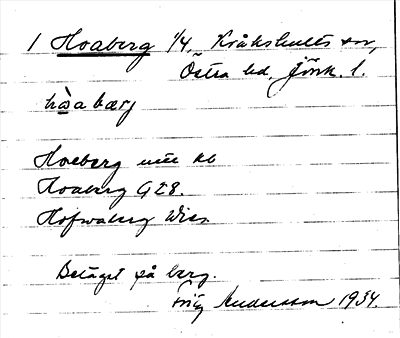 1 Hoaberg 1/4, Kråkshults sn,
Östra hd, Jönk. l.
hòabærj
Hoeberg
Hoaberg GEB.
Hofwaberg Wies.
Beläget på berg.
Fritz Andersson 1934.